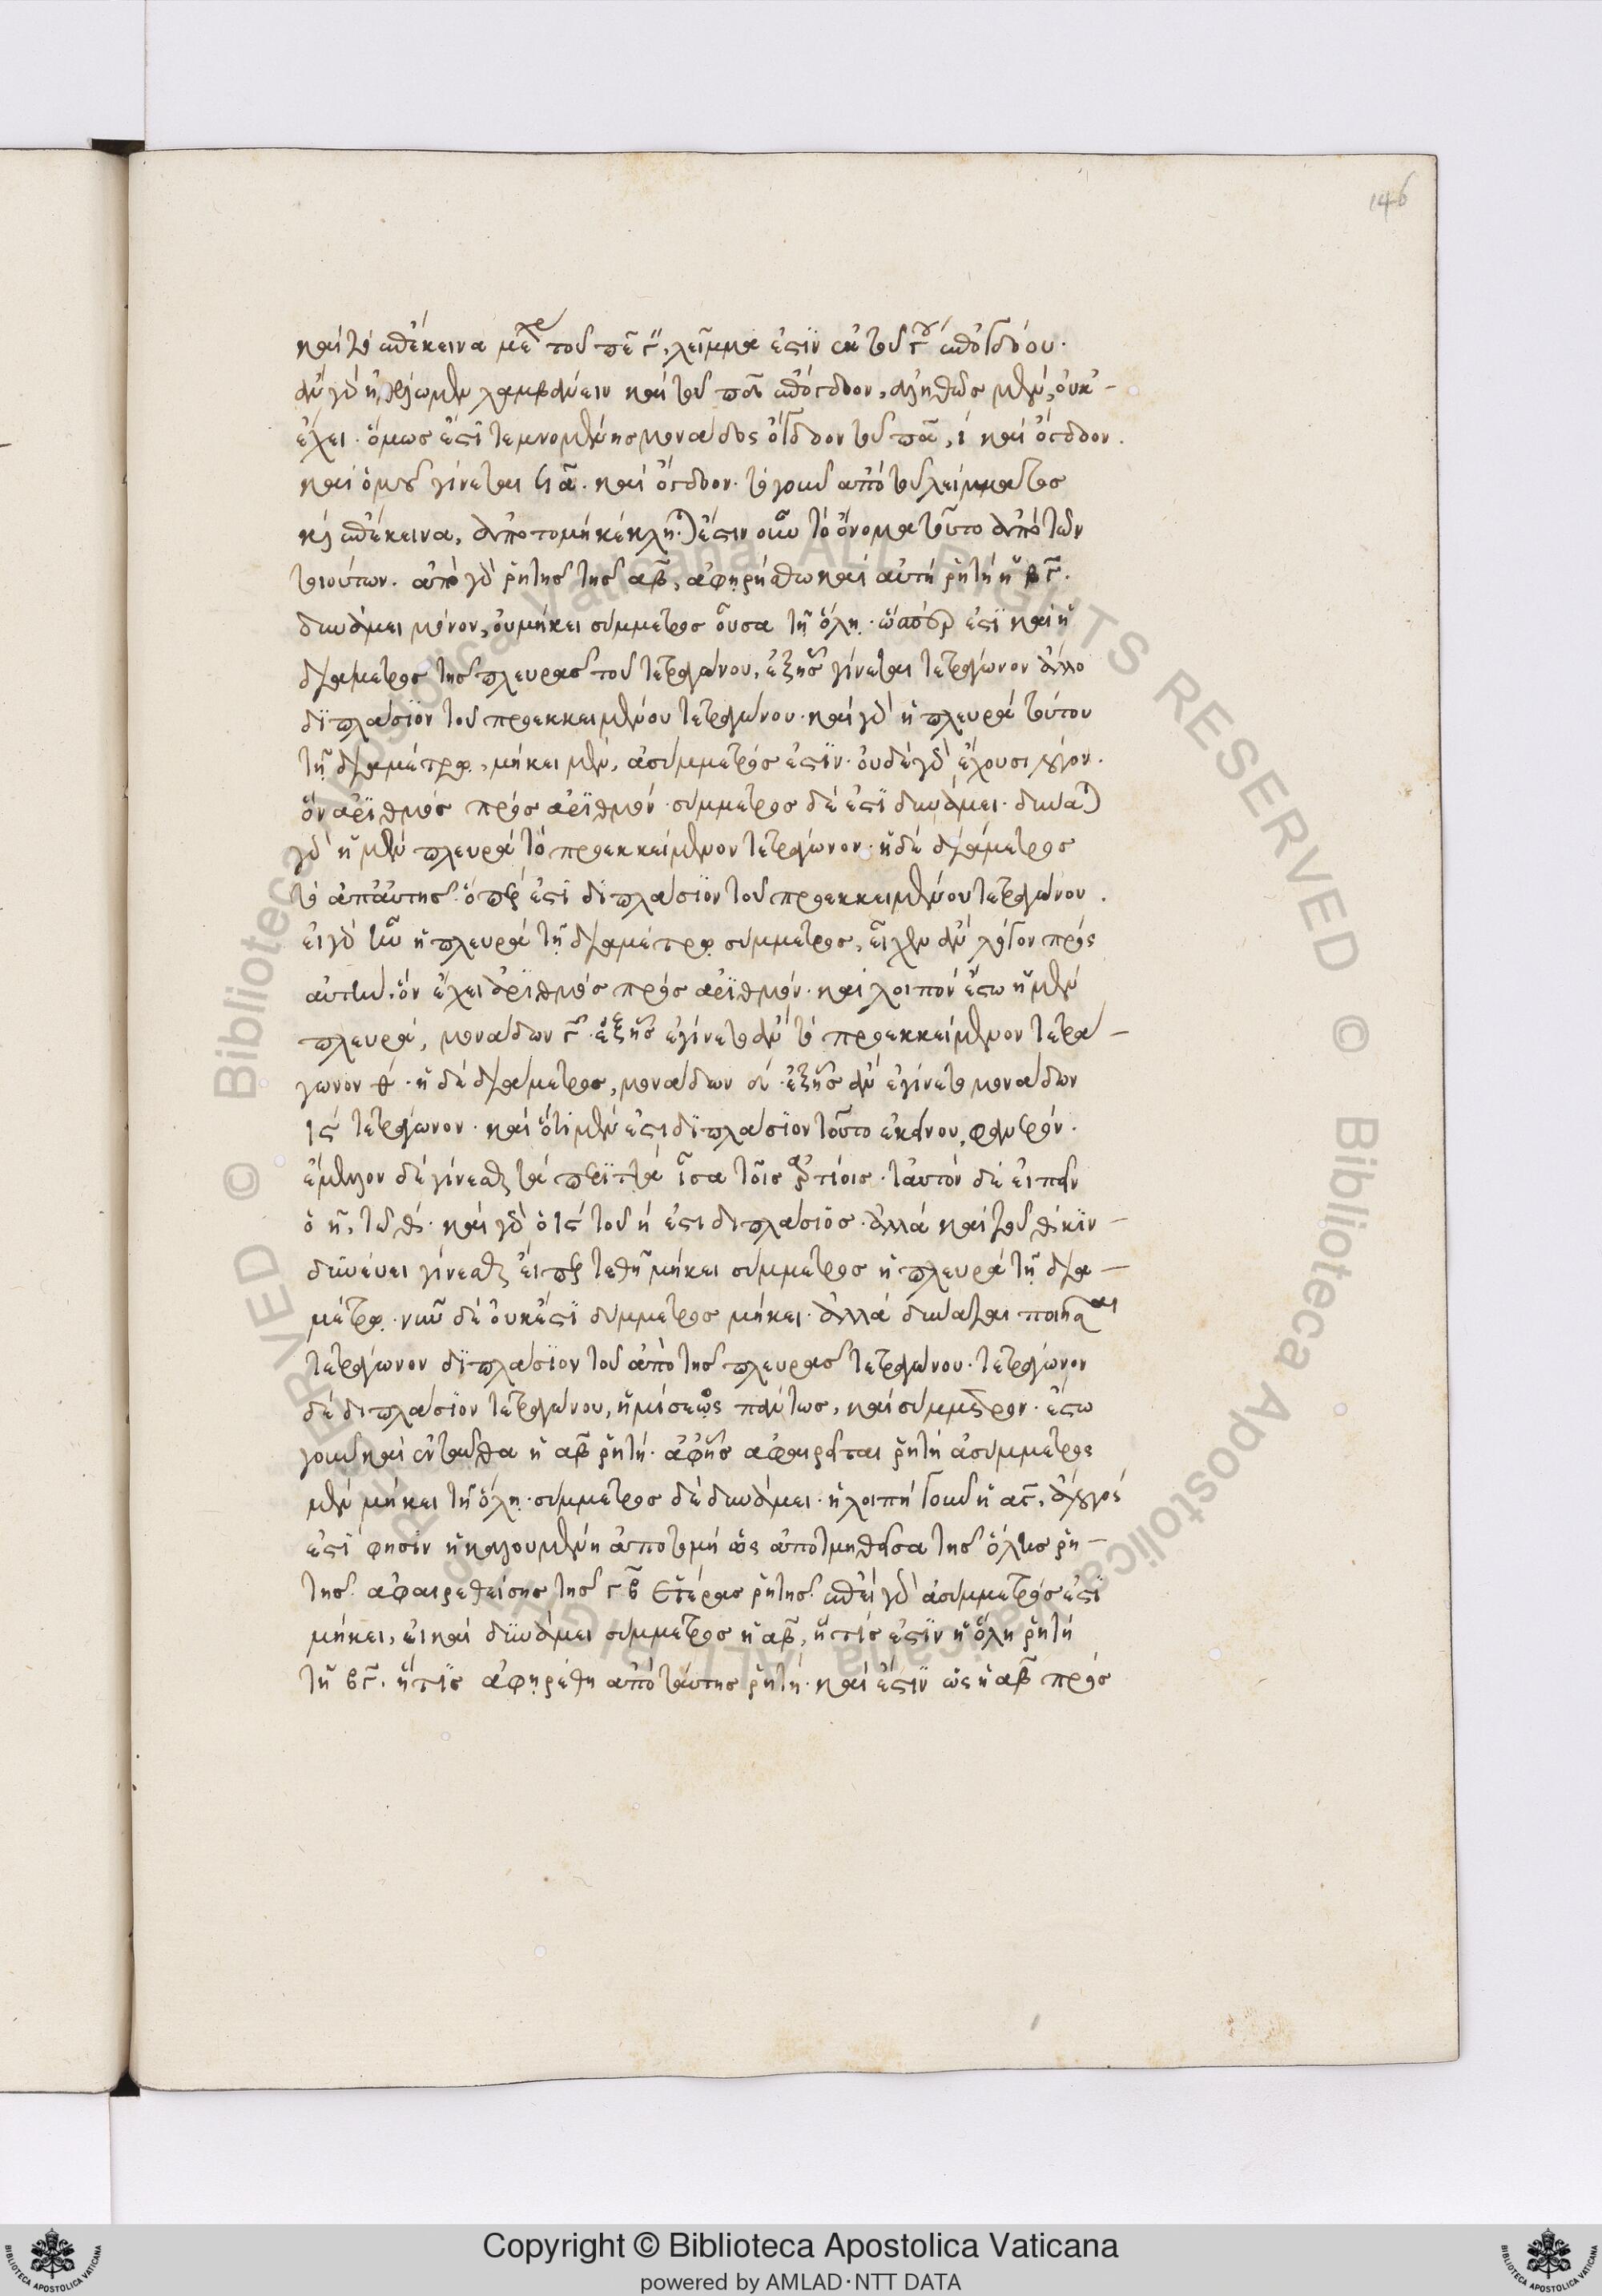 146
καὶ τὸ ἐπέκεινα μέχρι τοῦ
ἂν γὰρ λαμβάνειν καὶ τοῦ ὄγδοον, ἀληθῶς μὲν, οὐκ
ἔχει. ὅμως ἐστὶ τεμνομένης μονάδος ὄγδοον τοῦ, ι καὶ ὄγδοον.
καὶ ὁμοῦ γίνεται ια. καὶ ὄγδοον. τὸ γοῦν ἀπὸ τοῦ λείμματος
κἀπέκεινα, ἀποτομὴ κέκληται ἔστιν οὖν τὸ ὄνομα τοῦτο ἀπὸ τῶν
τοιούτων. ἀπὸ γὰρ ῥητῆς τῆς αβ, ἀφῃρήσθω καὶ αὐτὴ ῥητὴ ἡ βγ.
δυνάμει μόνον, οὐ μήκει σύμμετρος οὖσα τῇ ὅλῃ. ὥσπερ ἐστὶ καὶ ἡ
διάμετρος τῆς πλευρᾶς τοῦ τετραγώνου, ἐξ ἧς γίνεται τετράγωνον ἄλλο
διπλάσιον τοῦ προεκκειμένου τετραγώνου. καὶ γὰρ ἡ πλευρὰ τούτου
τῇ διαμέτρῳ, μήκει μὲν, ἀσύμμετρός ἐστιν. οὐδὲ γὰρ ἔχουσι λόγον.
ὃν ἀριθμὸς πρὸς ἀριθμόν. σύμμετρος δέ ἐστι δυνάμει. δύναται
γὰρ ἡ μὲν πλευρὰ τὸ προεκκείμενον τετράγωνον. ἡ δὲ διάμετρος
τὸ ἀπ' αὐτῆς. ὅπερ ἐστὶ διπλάσιον τοῦ προεκκειμένου τετραγώνου.
εἰ γὰρ ἦν ἡ πλευρὰ τῇ διαμέτρῳ σύμμετρος, εἶχεν ἂν λόγον πρὸς
αὐτὴν, ὃν ἔχει ἀριθμὸς πρὸς ἀριθμόν. καὶ λοιπὸν ἔστω ἡ μὲν
πλευρὰ, μονάδων γ. ἐξ ἧς ἐγίνετο ἂν τὸ προεκκείμενον τετρά
γωνον θ. ἡ δὲ διάμετρος, μονάδων δ. ἐξ ἧς ἂν ἐγίνετο μονάδων
ις τετράγωνον. καὶ ὅτι μὲν ἐστὶ διπλάσιον τοῦτο ἐκείνου, φανερόν.
ἔμελλον δὲ γίνεσθαι τὰ περιττὰ ἴσα τοῖς ἀρτίοις. ταυτὸν δὲ εἰπεῖν
ὁ η, τῷ θ. καὶ γὰρ ὁ ις τοῦ η ἐστὶ διπλάσιος. ἀλλὰ καὶ τοῦ θ κιν
δυνεύει γίνεσθαι εἴπερ τεθῇ μήκει σύμμετρος ἡ πλευρὰ τῇ δια
μέτρῳ. νῦν δὲ οὐκ ἔστι σύμμετρος μήκει. ἀλλὰ δύναται ποιῆσαι
τετράγωνον διπλάσιον τοῦ ἀπὸ τῆς πλευρᾶς τετραγώνου. τετράγωνον
δὲ διπλάσιον τετραγώνου, ἡμίσεως πάντως, καὶ σύμμετρον. ἔστω
γοῦν καὶ ἐνταῦθα ἡ αβ ῥητή. ἀφ' ἧς ἀφαιρεῖται ῥητὴ ἀσύμμετρος
μὲν μήκει τῇ ὅλῃ. σύμμετρος δὲ δυνάμει. ἡ λοιπὴ γοῦν ἡ αγ, ἄλογός
ἐστι φησὶν ἡ καλουμένη ἀποτομὴ ὡς ἀποτμηθεῖσα τῆς ὅλης ῥη
τῆς. ἀφαιρεθείσης τῆς γβ ἑτέρας ῥητῆς. ἐπεὶ γὰρ ἀσύμμετρός ἐστι
μήκει, εἰ καὶ δυνάμει σύμμετρος ἡ αβ, ἥτις ἐστὶν ἡ ὅλη ῥητὴ
τῇ βγ. ἥτις ἀφῃρέθη ἀπὸ ταύτης ῥητή. καὶ ἔστιν ὡς ἡ αβ πρὸς
Copyright © Biblioteca Apostolica Vaticana
powered by AMLAD·NTT DATA